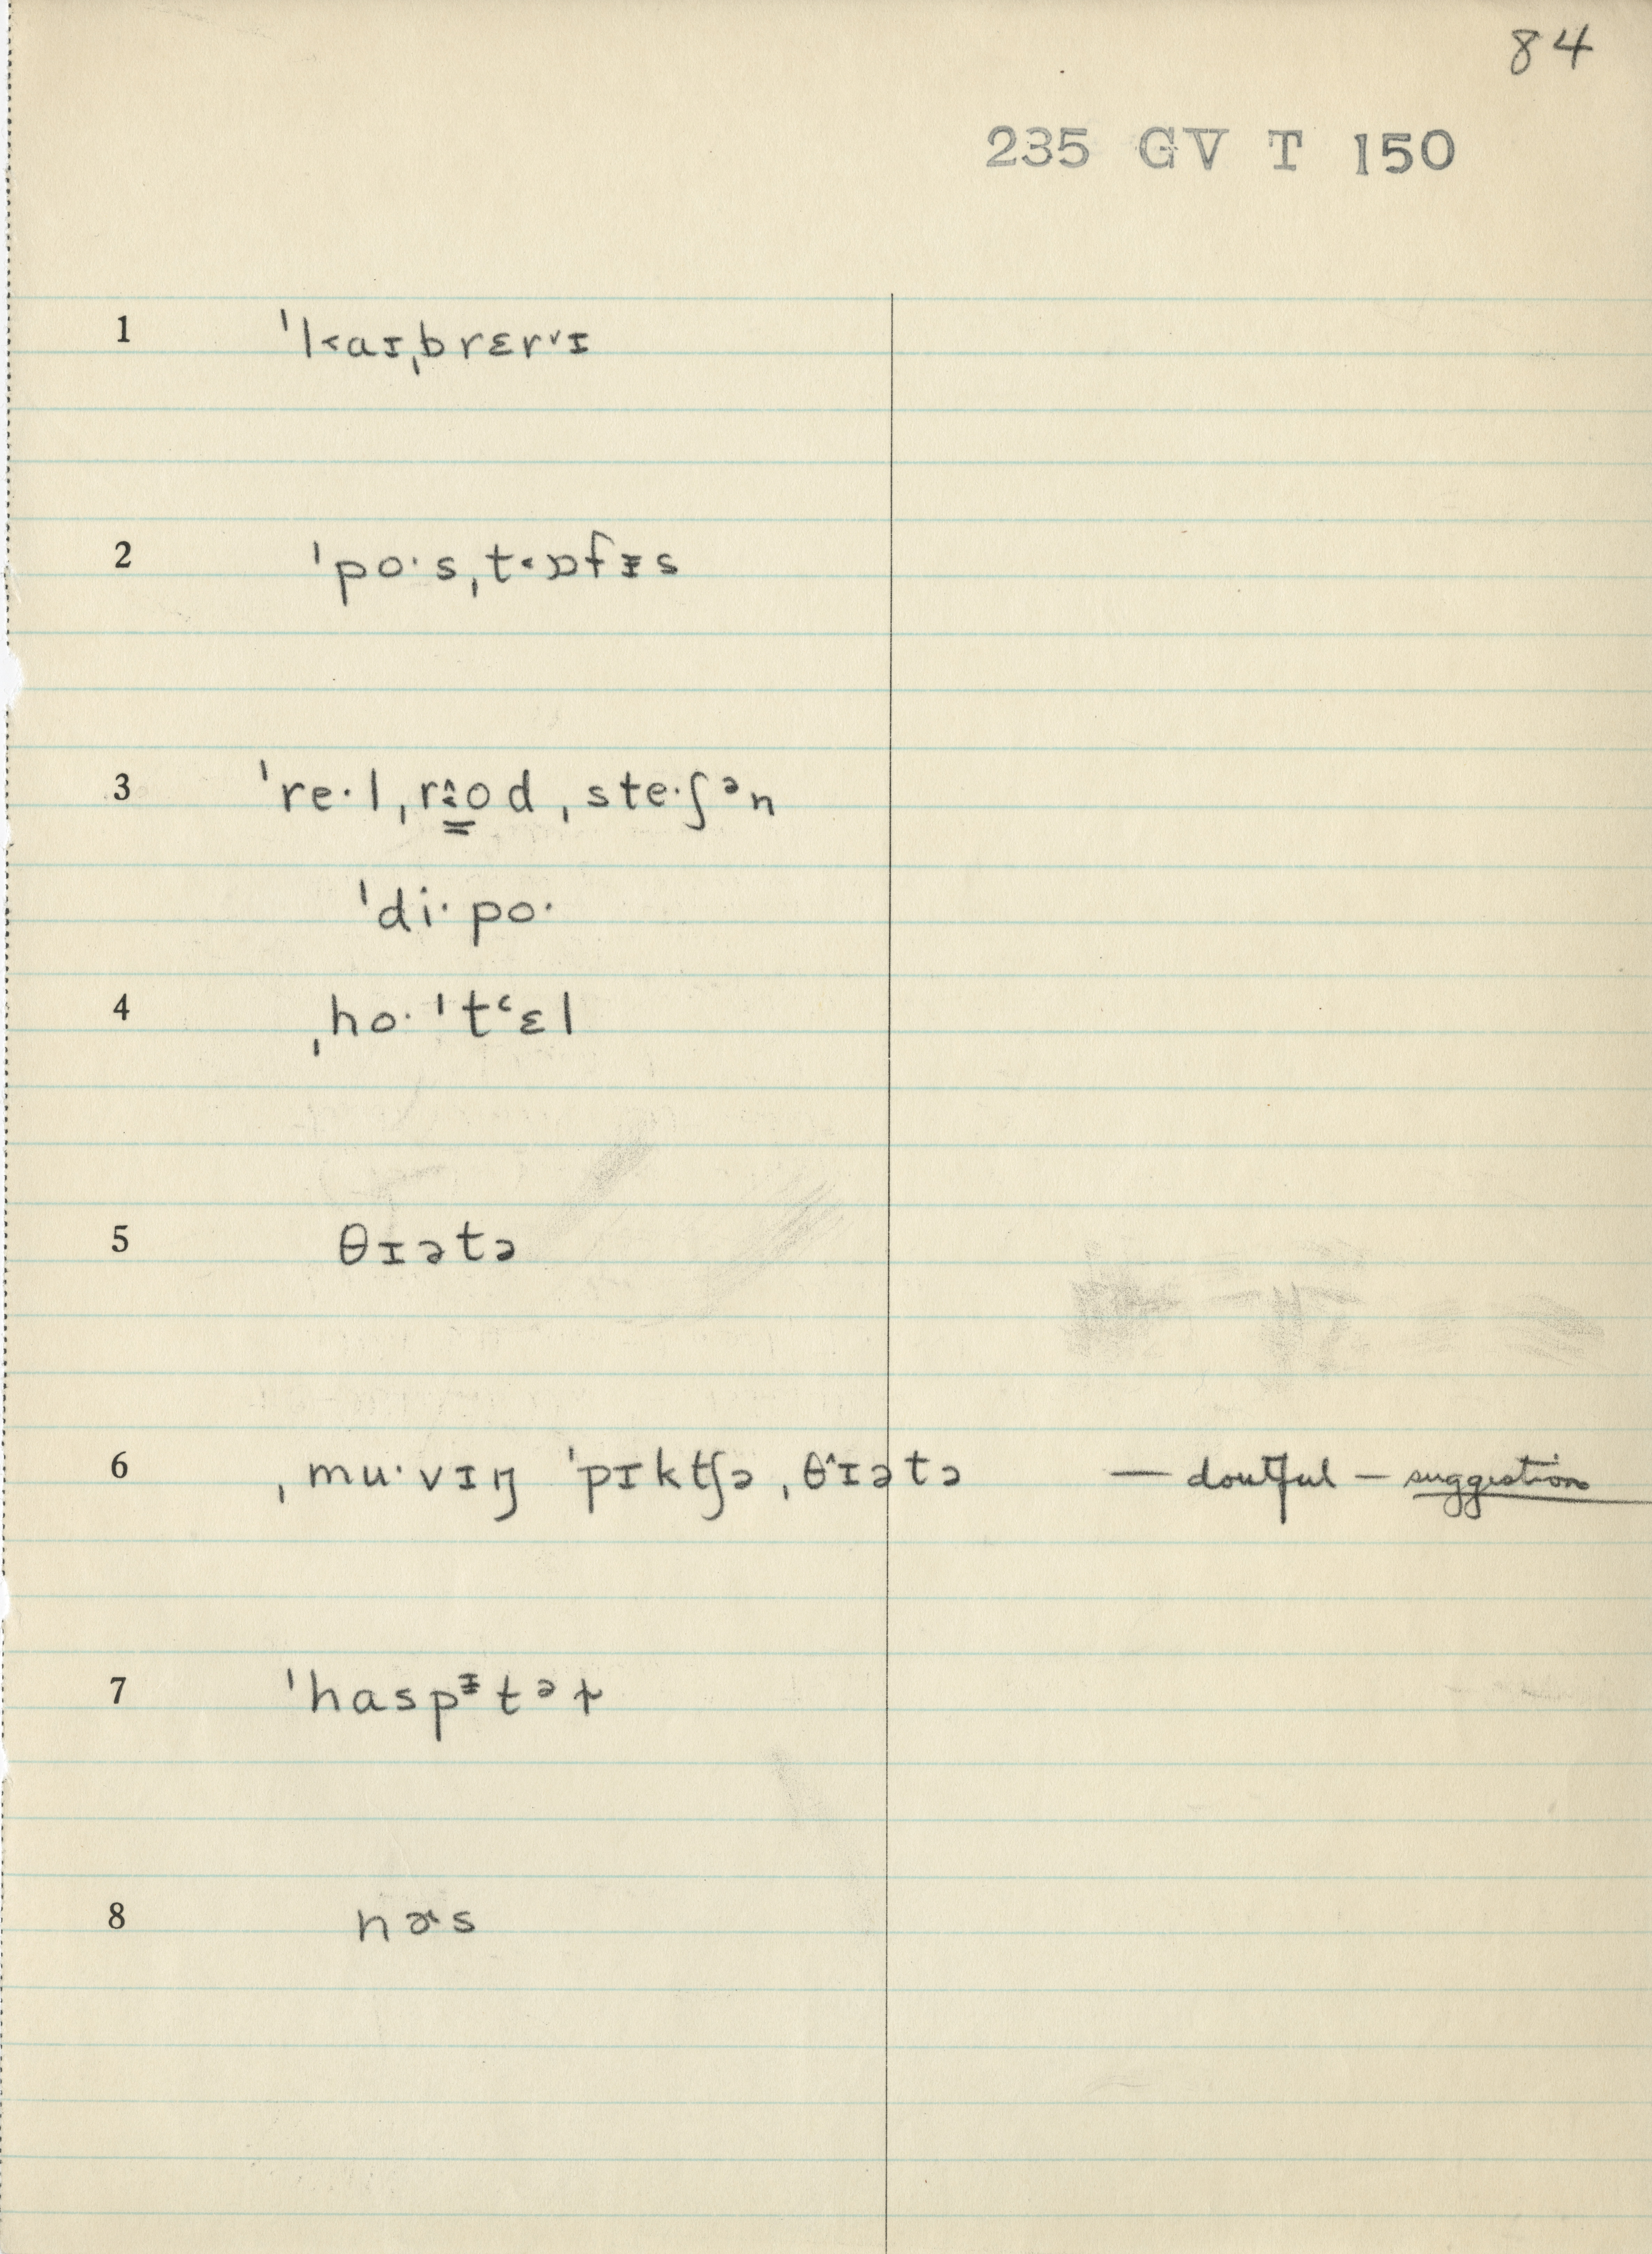 84
235 GV T 150
1 ˈlaɪˌbrɛrᵛɪ
2 ˈpo·sˌt‹ɒfɪ̵s
3 ˈre·lˌrɜod ˌste·ʃᵊn
ˈdi·po·
4 ˌho·ˈtʻɛl
5 θɪətə
6 ˌmu·vɪŋ ˈpɪkʧə ˌθɪətə — doutful — suggestion
7 ˈhaspᶤtəɫ
8 nɚs